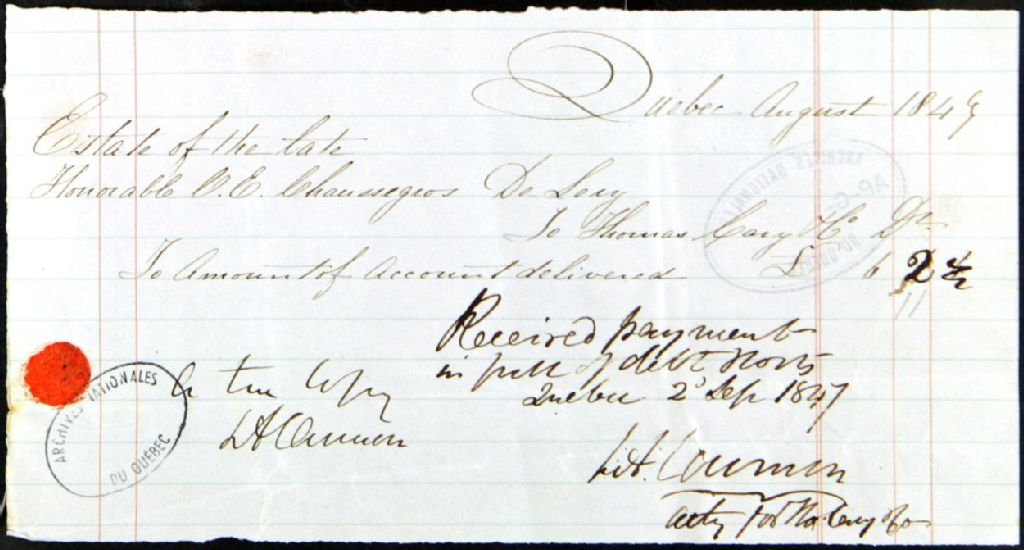 Quebec August 1847
Estate of the late
Honorable C. E. Chaussegros De Lery
To Thomas Cary & Co Dr
To Amount of Account delivered £ 6 2 ½
Received payment
in full of debt
Quebec 2d Sep 1847
A true Copy
Atty for Tho Cary & Co
ARCHIVES NATIONALES
DU QUÉBEC